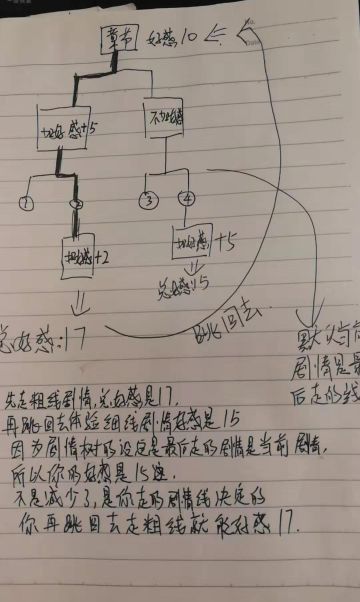 章节 好感10
加好感+5
不加好感
① ③ ④
加好感+2
加好感 +5
总好感:15
总好感:17
跳回去
默认当前
剧情是最
后走的线
先走粗线剧情,总好感是17,
再跳回去体验细线剧情好感是15
因为剧情树的设定是最后走的剧情是当前剧情,
所以你的好感是15
不是减少了,是你走的剧情线决定的
你再跳回去走粗线就能好感17.